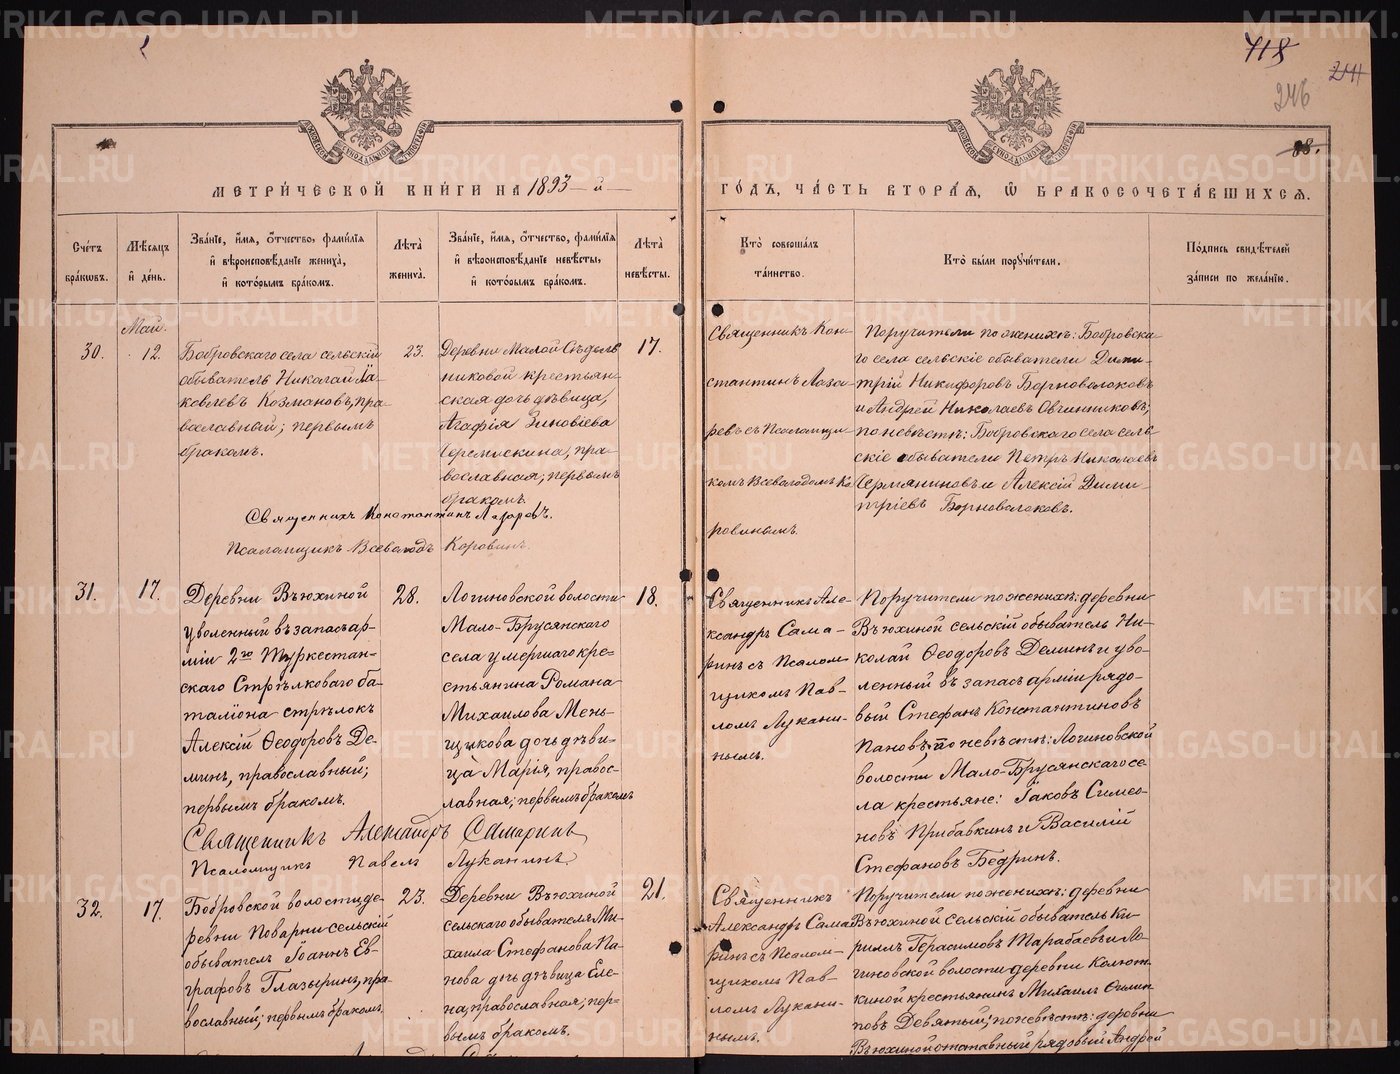 718
241
246
88.
МЕТРИ́ЧЕСКОЙ КНИ́ГИ НА 1893 — й —
ГО́ДЪ, ЧА́СТЬ ВТОРА́Я, Ѽ БРАКОСОЧЕТА́ВШИХСЯ.
Сче́тъ бра́ковъ.
Мѣ́сяцъ и́ де́нь.
Зва́нїе, и́мя, ѻ́тчество, фами́лїя и́ вѣроисповѣ́данїе жениха̀, и́ кото́рымъ бра́комъ.
Лѣта̀ жениха̀.
Зва́нїе, и́мя, ѻ́тчество, фами́лїя и́ вѣроисповѣ́данїе невѣ́сты, и́ кото́рымъ бра́комъ.
Лѣта̀ невѣ́сты.
Кто̀ соверша́лъ та́инство.
Кто̀ бы́ли поручи́тели.
По́дпись свидѣ́телей за́писи по жела́нію.
Май.
30.
12.
Бобровскаго села сельскій
обыватель Николай Іа-
ковлевъ Козмановъ, пра-
вославный; первымъ
бракомъ.
23.
Деревни Малой Сѣдель
никовой крестьян-
ская дочь дѣвица,
Агафія Зиновіева
Черемискина, пра-
вославная; первымъ
бракомъ.
17.
Священникъ Кон-
стантинъ Лаза-
ревъ съ Псаломщи-
комъ Всеволодомъ Ко-
ровинымъ.
Поручители по женихѣ: Бобровска-
го села сельскіе обыватели Дими-
трій Никифоровъ Борноволоковъ
и Андрей Николаевъ Овчинниковъ;
по невѣстѣ: Бобровскаго села сель-
скіе обыватели Петръ Николаевъ
Чермяниновъ и Алексій Дими-
тріевъ Борноволоковъ.
Священникъ Константинъ Лазаревъ.
Псаломщикъ Всеволодъ Коровинъ.
31.
17.
Деревни Въюхиной
уволенный въ запасъ ар-
міи 2го Туркестан-
скаго Стрѣлковаго ба-
таліона стрѣлокъ
Алексій Ѳеодоровъ Де-
минъ, православный;
первымъ бракомъ.
28.
Логиновской волости
Мало-Брусянскаго
села умершаго кре-
стьянина Романа
Михаилова Мень-
щикова дочь дѣви-
ца Марія, правос-
лавная; первымъ бракомъ
18.
Священникъ Але-
ксандръ Сама-
ринъ съ Псалом-
щикомъ Пав-
ломъ Лукани-
нымъ.
Поручители по женихѣ: деревни
Въюхиной сельскій обыватель Ни-
колай Ѳеодоровъ Деминъ и уво-
ленный въ запасъ арміи рядо-
вый Стефанъ Константиновъ
Пановъ; по невѣстѣ: Логиновской
волости Мало-Брусянскаго се-
ла крестьяне: Іаковъ Симео-
новъ Прибавкинъ и Василій
Стефановъ Бедринъ.
Священникъ Александръ Самаринъ
Псаломщикъ Павелъ Луканинъ.
32.
17.
Бобровской волости де-
ревни Поварни сельскій
обыватель Іоаннъ Ев-
графовъ Глазыринъ, пра-
вославный; первымъ бракомъ.
23.
Деревни Въюхиной
сельскаго обывателя Ми-
хаила Стефанова Па-
нова дочь дѣвица Еле-
на, православная; пер-
вымъ бракомъ.
21.
Священникъ
Александръ Сама-
ринъ съ Псалом-
щикомъ Пав-
ломъ Лукани-
нымъ.
Поручители по женихѣ: деревни
Въюхиной сельскій обыватель Ки-
риллъ Герасимовъ Тарабаевъ и Ло-
гиновской волости деревни Колют-
киной крестьянинъ Михаилъ Филип-
повъ Девятый; по невѣстѣ: деревни
Въюхиной отставный рядовый Андрей
METRIKI.GASO-URAL.RU